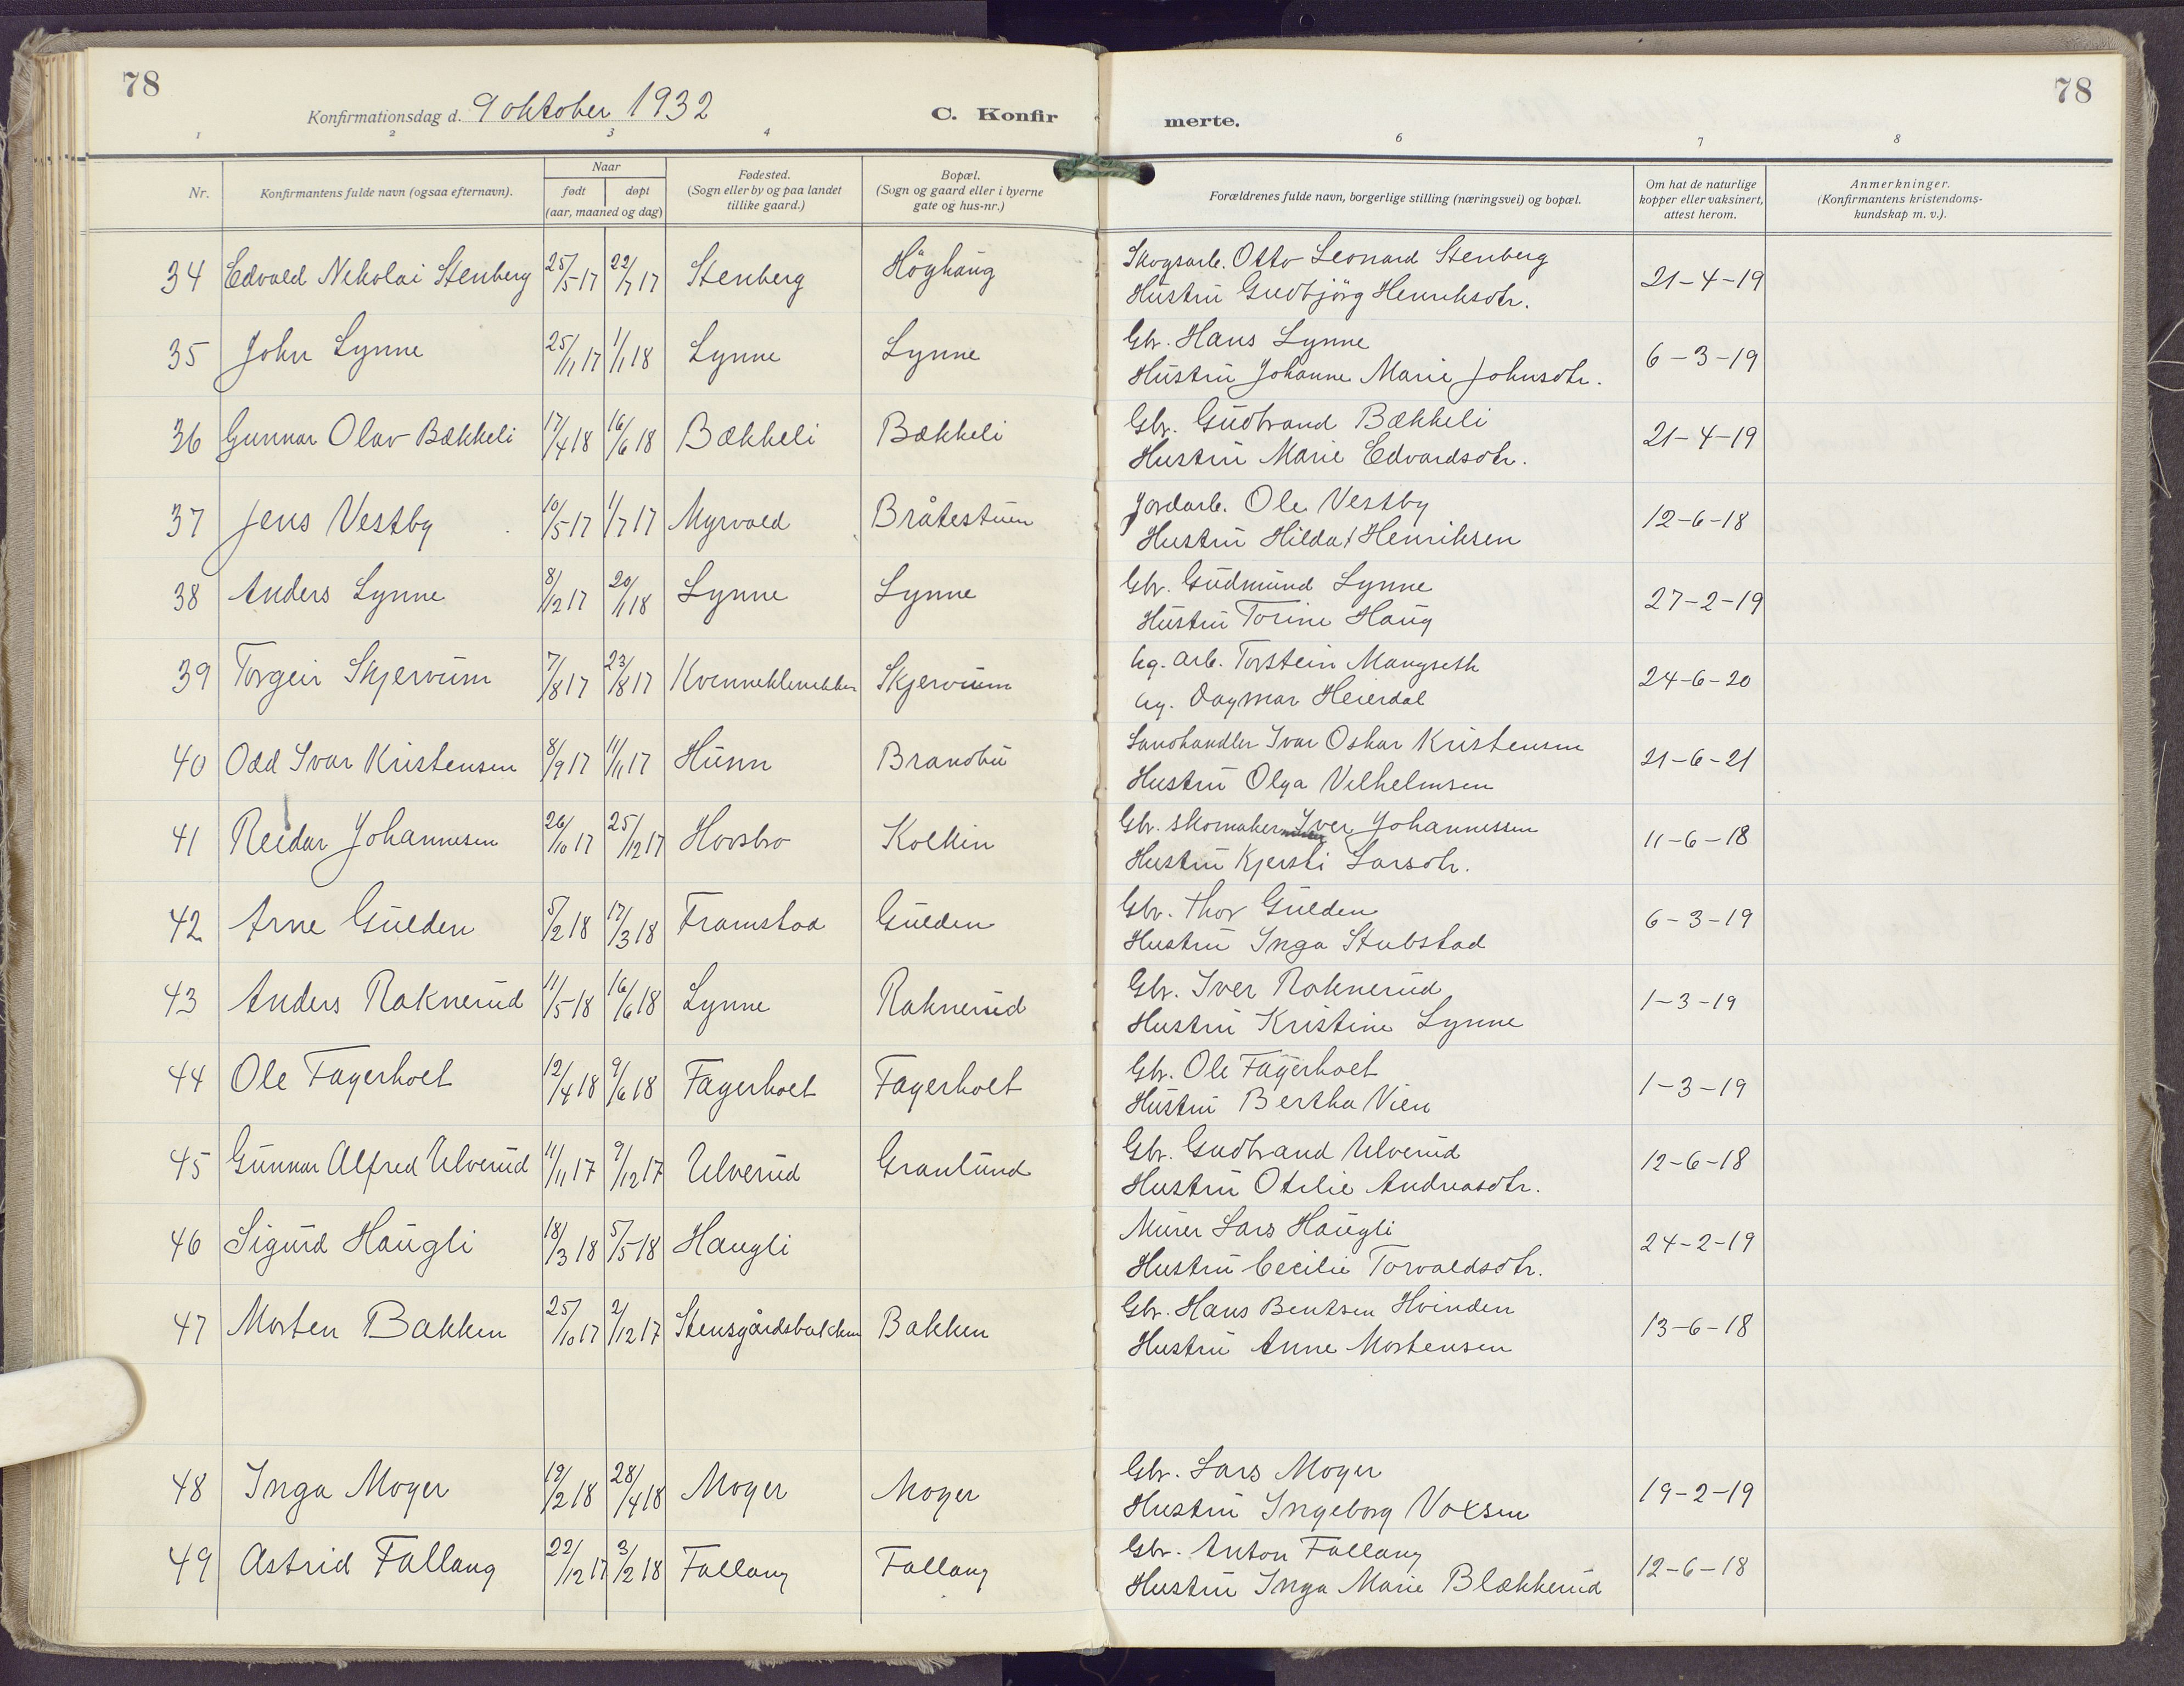 78
78
Konfirmationsdag d. 9 oktober 1932
C. Konfir
merte.
1 2 3 4 6 7 8
Nr.
Konfirmantens fulde navn (ogsaa efternavn).
Naar
født døpt
(aar, maaned og dag)
Fødested.
(Sogn eller by og paa landet
tillike gaard.)
Bopæl.
(Sogn og gaard eller i byerne
gate og hus-nr.)
Forældrenes fulde navn, borgerlige stilling (næringsvei) og bopæl.
Om hat de naturlige
kopper eller vaksinert,
attest herom.
Anmerkninger.
(Konfirmantens kristendoms-
kundskap m. v.).
34 Edvald Nikolai Stenberg 25/5-17 22/7 17 Stenberg Höghaug Skogsarb. Otto Leonard Stenberg 21-4-19
Hustru Gudbjörg Henriksdtr.
35 John Lynne 25/11 17 1/1 18 Lynne Lynne Gbr. Hans Lynne 6-3-19
Hustru Johanne Marie Johnsdtr.
36 Gunnar Olav Bækkeli 17/4 18 16/6 18 Bækkeli Bækkeli Gbr. Gudbrand Bækkeli 21-4-19
Hustru Marie Edvardsdtr.
37 Jens Vestby 10/5 17 1/7 17 Myrvold Bråtestuen Jordarb. Ole Vestby 12-6-18
Hustru Hilda Henriksen
38 Anders Lynne 8/12 17 20/1 18 Lynne Lynne Gbr. Gudmund Lynne 27-2-19
Hustru Torine Haug
39 Torgeir Skjervum 7/8 17 23/8 17 Skjervum Ug. arb. Torstein Mangseth 24-6-20
Ug. Dagmar Heierdal
40 Odd Ivar Kristensen 8/9 17 11/11 17 Hunn Brandbu Landhandler Ivar Oskar Kristensen 21-6-21
Hustru Olga Vilhelmsen
41 Reidar Johannesen 26/10 17 25/12 17 Hovsbro Kolkin Gbr. skomaker Iver Johannessen 11-6-18
Hustru Kjersti Larsdtr.
42 Arne Gulden 5/2 18 17/3 18 Framstad Gulden Gbr. Thor Gulden 6-3-19
Hustru Inga Stubstad
43 Anders Raknerud 11/5-18 16/6 18 Lynne Raknerud Gbr. Iver Raknerud 1-3-19
Hustru Kristine Lynne
44 Ole Fagerholt 12/4 18 9/6 18 Fagerholt Fagerholt Gbr. Ole Fagerholt 1-3-19
Hustru Bertha Vien
45 Gunnar Alfred Ulverud 11/11 17 9/12 17 Ulverud Granlund Gbr. Gudbrand Ulverud 12-6-18
Hustru Otilie Andreasdtr.
46 Sigurd Haugli 18/3 18 5/5-18 Haugli Murer Lars Haugli 24-2-19
Hustru Cecilie Torvaldsdtr.
47 Morten Bakken 25/10 17 2/12 17 Stensgårdsbakken Bakken Gbr. Hans Bentsen Hvinden 13-6-18
Hustru Anne Mortensen
48 Inga Moger 19/2 18 28/4 18 Moger Moger Gbr. Lars Moger 19-2-19
Hustru Ingeborg Voxsen
49 Astrid Fallang 22/12 17 3/2 18 Fallang Fallang Gbr. Anton Fallang 12-6-18
Hustru Inga Marie Blækkerud